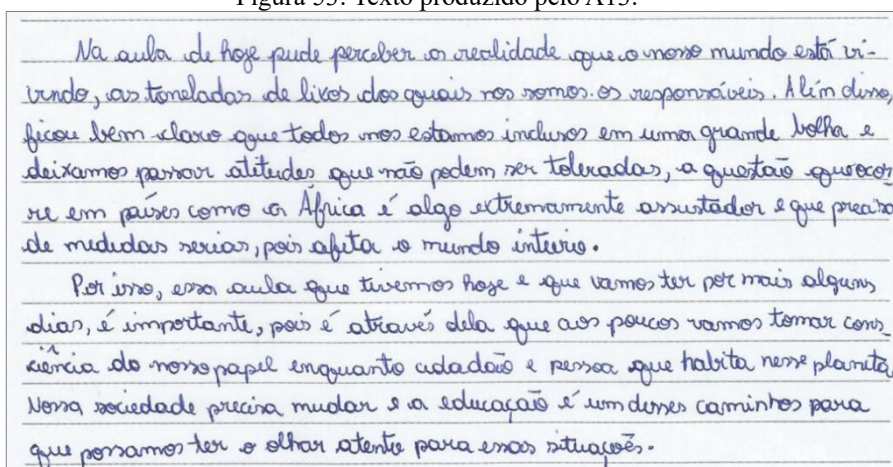 Figura 53: Texto produzido pelo A15.
Na aula de hoje pude perceber a realidade que o nosso mundo está vi-
vendo, as toneladas de lixos dos quais nos somos os responsáveis. Além disso,
ficou bem claro que todos nos estamos inclusos em uma grande bolha e
deixamos passar atitudes que não podem ser toleradas, a questão que ocor
re em países como a África é algo extremamente assustador e que precisa
de medidas serias, pois afeta o mundo inteiro.
Por isso, essa aula que tivemos hoje e que vamos ter por mais alguns
dias, é importante, pois é através dela que aos poucos vamos tomar cons_
ciência do nosso papel enquanto cidadão e pessoa que habita nesse planeta.
Nossa sociedade precisa mudar e a educação é um desses caminhos para
que possamos ter o olhar atento para essas situações.